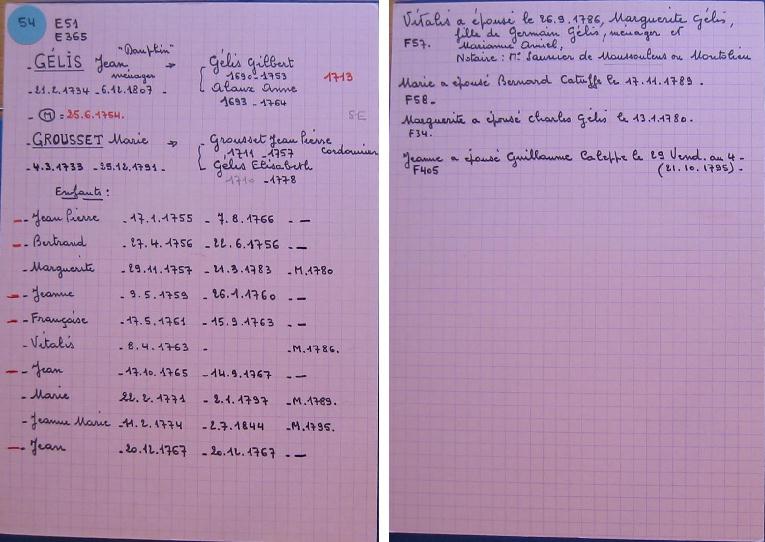 54 E51
E365
"Dauphin"
- GÉLIS Jean → Gélis Gilbert
ménager 1690-1753 1713
- 21.2.1734 - 6.12.1807 - Alaux Anne
1693 - 1764
- M = 25.6.1754. SE
- GROUSSET Marie → Grousset Jean Pierre
1711 - 1757 cordonnier
- 4.3.1733 - 25.12.1791 - Gélis Elisabeth
1710 - 1778
Enfants :
- Jean Pierre - 17.1.1755 - 7.8.1766 - -
- Bertrand - 27.4.1756 - 22.6.1756 - -
- Marguerite - 29.11.1757 - 21.3.1783 - M.1780
- Jeanne - 9.5.1759 - 26.1.1760 - -
- Française - 17.5.1761 - 15.9.1763 - -
- Vitalis - 8.4.1763 - - M.1786.
- Jean - 17.10.1765 - 14.9.1767 - -
- Marie 22.2.1771 - 2.1.1797 - M.1789.
- Jeanne Marie - 11.2.1774 - 2.7.1844 - M.1795.
- Jean - 20.12.1767 - 20.12.1767 - -
Vitalis a épousé le 26.9.1786, Marguerite Gélis,
fille de Germain Gélis, ménager et
F57. Marianne Amiel,
Notaire : Me Saunier de Moussoulens ou Montolieu
Marie a épousé Bernard Catuffe le 17.11.1789.
F58-
Marguerite a épousé Charles Gélis le 13.1.1780.
F34.
Jeanne a épousé Guillaume Caleppe le 29 Vend. an 4 -
F405 (21.10.1795) -